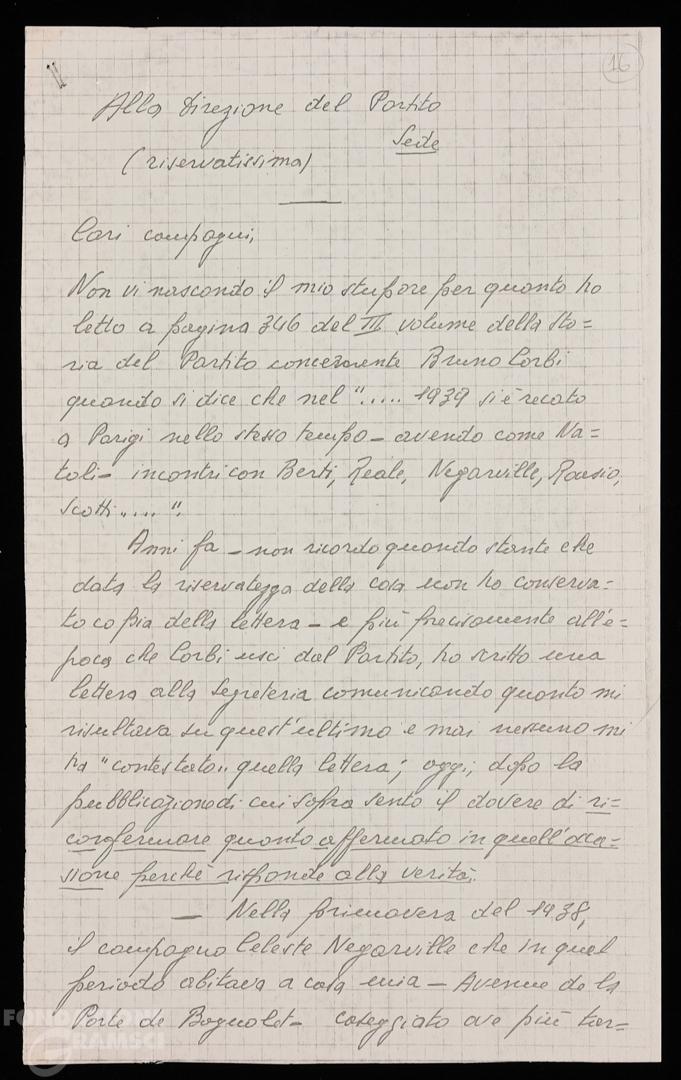 16
Alla Direzione del Partito
Sede
(riservatissima)
Cari compagni,
Non vi nascondo il mio stupore per quanto ho
letto a pagina 346 del III volume della Sto=
ria del Partito concernente Bruno Corbi
quando si dice che nel "..... 1939 si è recato
a Parigi nello stesso tempo - avendo come Na=
toli - incontri con Berti, Reale, Negarville, Roasio,
Scotti ".... ".
Anni fa - non ricordo quando stante che
data la riservatezza della cosa non ho conserva=
to copia della lettera - e più precisamente all'e=
poca che Corbi uscì dal Partito, ho scritto una
lettera alla Segreteria comunicando quanto mi
risultava su quest'ultimo e mai nessuno mi
ha "contestato" quella lettera; oggi, dopo la
pubblicazione di cui sopra sento il dovere di ri=
confermare quanto affermato in quell'occa=
sione perchè risponde alla verità.
— Nella primavera del 1938,
il compagno Celeste Negarville che in quel
periodo abitava a casa mia - Avenue de la
Porte de Bagnolet - caseggiato ove più tar=
FONDAZIONE
GRAMSCI